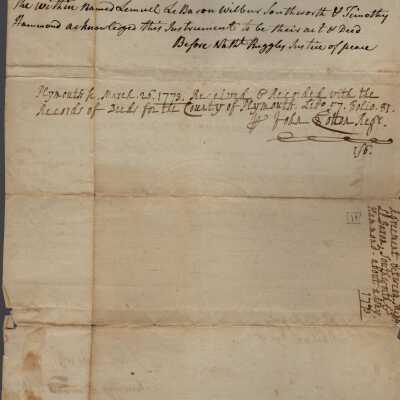 The Within Named Lemuel Le Baron Wilbur Southworth & Timothy
Hammond acknowledged this Instrument to be their act & Deed
Before Nathl. Ruggles Justice of peace
Plymouth Ss. March 26. 1773. Received & Recorded with the
Records of Deeds for the County of Plymouth. Lib. 57. Folio. 81.
John Cotton Regr.
Agreement between
Le Baron, Southworth &
Hammond - about a
1773